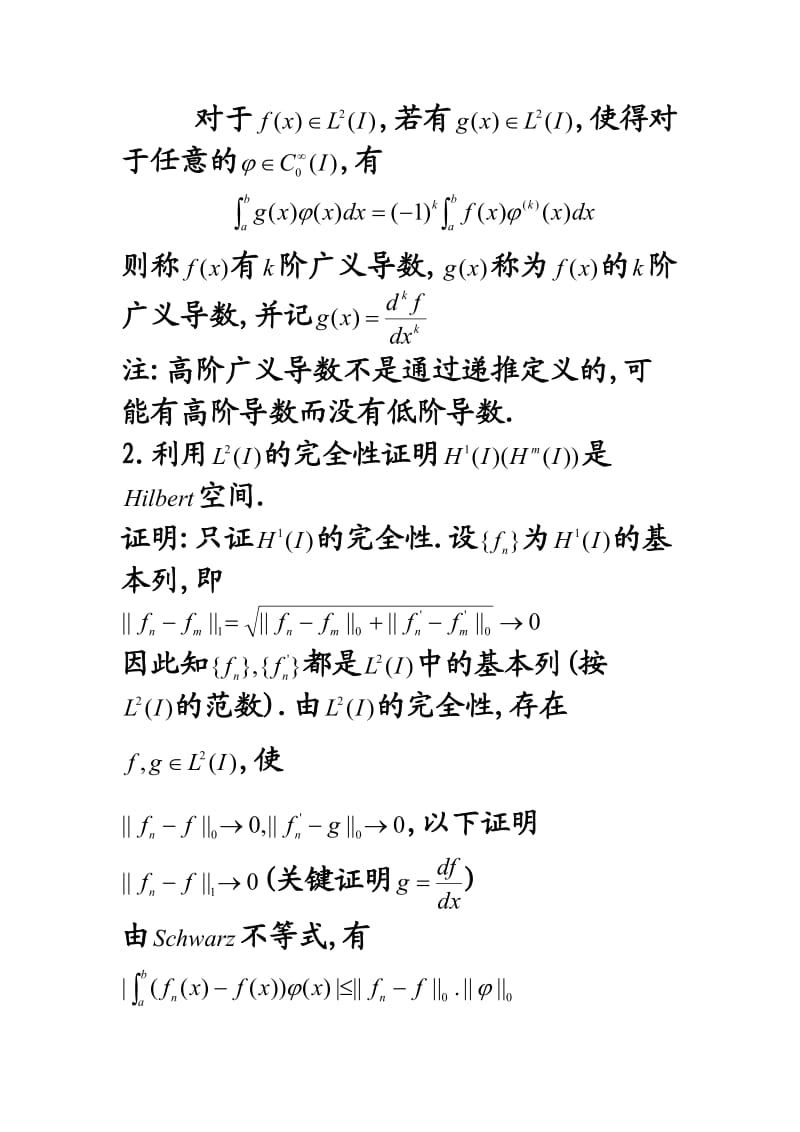 对于 f(x)∈L²(I),若有 g(x)∈L²(I),使得对
于任意的 φ∈C₀^∞(I),有
∫_a^b g(x)φ(x)dx = (−1)^k ∫_a^b f(x)φ^(k)(x)dx
则称 f(x) 有 k 阶广义导数, g(x) 称为 f(x) 的 k 阶
广义导数,并记 g(x) = d^k f / dx^k
注:高阶广义导数不是通过递推定义的,可
能有高阶导数而没有低阶导数.
2.利用 L²(I) 的完全性证明 H¹(I)(H^m(I)) 是
Hilbert 空间.
证明:只证 H¹(I) 的完全性.设 {f_n} 为 H¹(I) 的基
本列,即
|| f_n − f_m ||₁ = √(|| f_n − f_m ||₀ + || f_n' − f_m' ||₀) → 0
因此知 {f_n},{f_n'} 都是 L²(I) 中的基本列(按
L²(I) 的范数).由 L²(I) 的完全性,存在
f,g∈L²(I),使
|| f_n − f ||₀ → 0,|| f_n' − g ||₀ → 0,以下证明
|| f_n − f ||₁ → 0 (关键证明 g = df/dx)
由 Schwarz 不等式,有
| ∫_a^b (f_n(x) − f(x))φ(x) | ≤ || f_n − f ||₀ . || φ ||₀